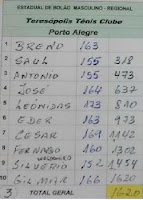 ESTADUAL DE BOLÃO MASCULINO - REGIONAL
Teresópolis Tênis Clube
Porto Alegre
1 BRENO 163
2 SAUL 155 318
3 ANTONIO 155 473
4 JOSÉ 164 637
5 LEÔNIDAS 173 810
6 EDER 163 973
7 CESAR 169 1142
8 FERNANDO 160 1302
9 SILVÉRIO 152 1454
10 GILMAR 166 1620
3 TOTAL GERAL 1620